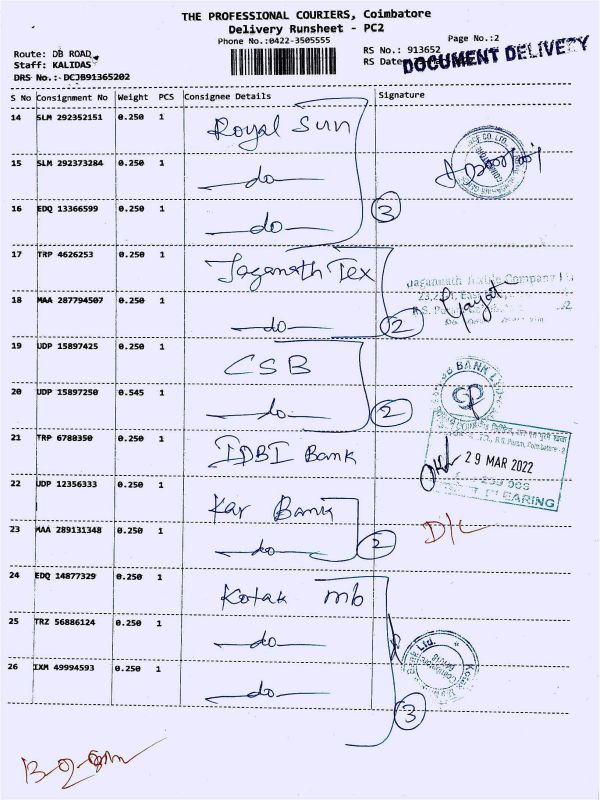 THE PROFESSIONAL COURIERS, Coimbatore
Delivery Runsheet - PC2
Phone No.:0422-3505555
Page No.:2
Route: DB ROAD
RS No.: 913652
Staff: KALIDAS
RS Date
DOCUMENT DELIVERY
DRS No.: DCJB91365202
S No Consignment No Weight PCS Consignee Details Signature
14 SLM 292352151 0.250 1 Royal Sun
15 SLM 292373284 0.250 1 do
16 EDQ 13366599 0.250 1 do
3
17 TRP 4626253 0.250 1 Jaganath Tex
Jagannath Textile Company
18 MAA 287794507 0.250 1 do 2
19 UDP 15897425 0.250 1 CSB
BANK
20 UDP 15897250 0.545 1 do 2
21 TRP 6788350 0.250 1 IDBI Bank
29 MAR 2022
CLEARING
22 UDP 12356333 0.250 1 Kar Bank
D/L
23 MAA 289131348 0.250 1 do 2
24 EDQ 14877329 0.250 1 Kotak mb
25 TRZ 56886124 0.250 1 do
26 IXM 49994593 0.250 1 do
3